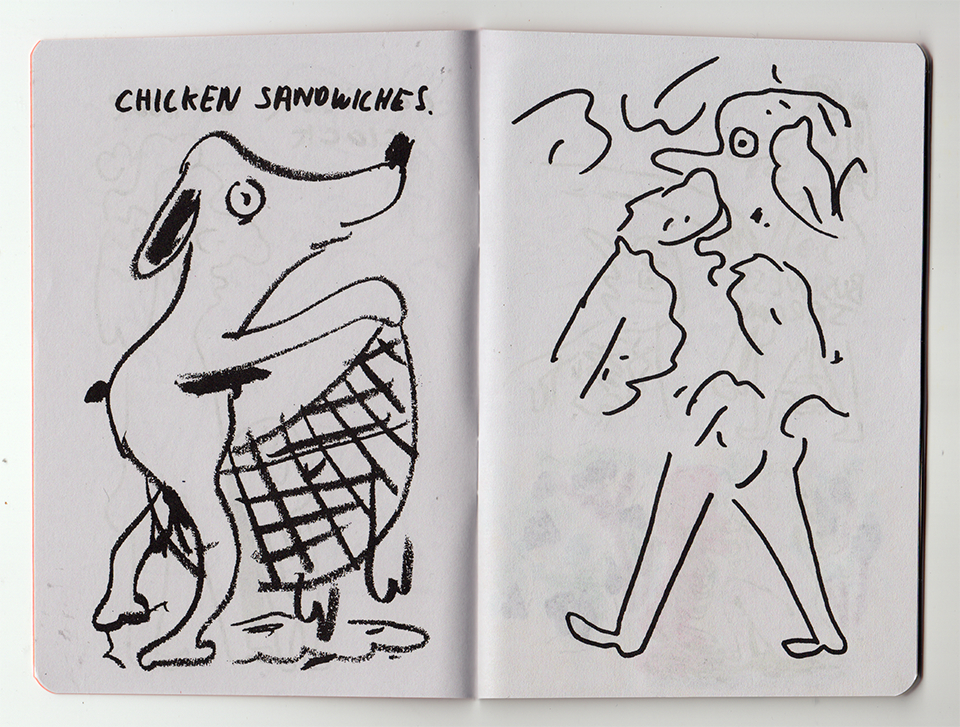 CHICKEN SANDWICHES.